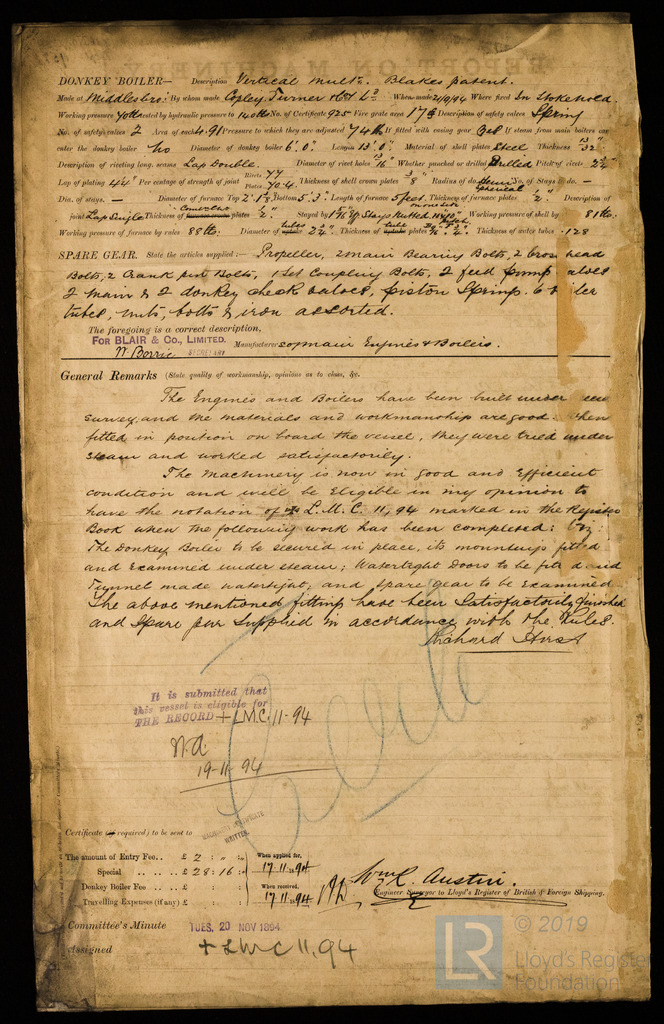 DONKEY BOILER— Description Vertical Mult. Blakes patent.
Made at Middlesbro' By whom made Copley Turner & Co Ld When made 21/9/94 Where fixed In Stokehold
Working pressure 70 lbs tested by hydraulic pressure to 140 lbs No. of Certificate 925 Fire grate area 17 Description of safety valves Spring
No. of safety valves 2 Area of each 4.91 Pressure to which they are adjusted 74 lb If fitted with easing gear Yes If steam from main boilers can
enter the donkey boiler No Diameter of donkey boiler 6'.0" Length 13'.0" Material of shell plates Steel Thickness 13/32"
Description of riveting long. seams Lap Double. Diameter of rivet holes 13/16" Whether punched or drilled Drilled Pitch of rivets
Lap of plating Per centage of strength of joint Rivets 77 Plates 70.4 Thickness of shell crown plates Radius of do. Spherical No. of Stays to do. —
Dia. of stays. — Diameter of furnace Top Bottom 5'.3" Length of furnace 5 feet. Thickness of furnace plates 1/2" Description of
joint Lap Single Thickness of plates 1/2" Stayed by Stays Nutted Working pressure of shell by 81 lb.
Working pressure of furnace by rules 88 lb. Diameter of tubes 2 1/4" Thickness of tube plates Thickness of water tubes .128
SPARE GEAR. State the articles supplied:— Propeller, 2 main Bearing Bolts, 2 Cross head
Bolts, 2 Crank pin Bolts, 1 Set Coupling Bolts, 2 feed pump valves
2 main & 2 donkey check valves, piston Springs. 6 boiler
tubes, nuts, bolts & iron assorted.
The foregoing is a correct description,
FOR BLAIR & Co., LIMITED.
W. Borrie SECRETARY Manufacturers of main Engines & Boilers.
General Remarks (State quality of workmanship, opinions as to class, &c.
The Engines and Boilers have been built under
survey, and the materials and workmanship are good. When
fitted in position on board the vessel, they were tried under
steam and worked satisfactorily.
The Machinery is now in good and efficient
condition and will be Eligible in my opinion to
have the notation of + L.M.C. 11,94 marked in the Register
Book when the following work has been completed: Viz:
The Donkey Boiler to be secured in place, its mountings fitted
and examined under steam; Watertight Doors to be fitted and
Tunnel made watertight; and spare gear to be examined
The above mentioned fittings have been Satisfactorily finished
and Spare gear Supplied in accordance with the Rules.
Richard Hirst
It is submitted that
this vessel is eligible for
THE RECORD + L.M.C. 11-94
19-11-94
Certificate (if required) to be sent to
MACHINERY CERTIFICATE
WRITTEN.
The amount of Entry Fee.. £ 2 : " : "
Special .. .. .. £ 28 : 16 :
Donkey Boiler Fee .. .. £ : :
Travelling Expenses (if any) £ : :
When applied for,
17.11.94
When received,
17.11.94
Wm R. Austin.
Engineer Surveyor to Lloyd's Register of British & Foreign Shipping.
Committee's Minute TUES. 20 NOV 1894
Assigned + LMC 11.94
LR
© 2019
Lloyd's Register
Foundation